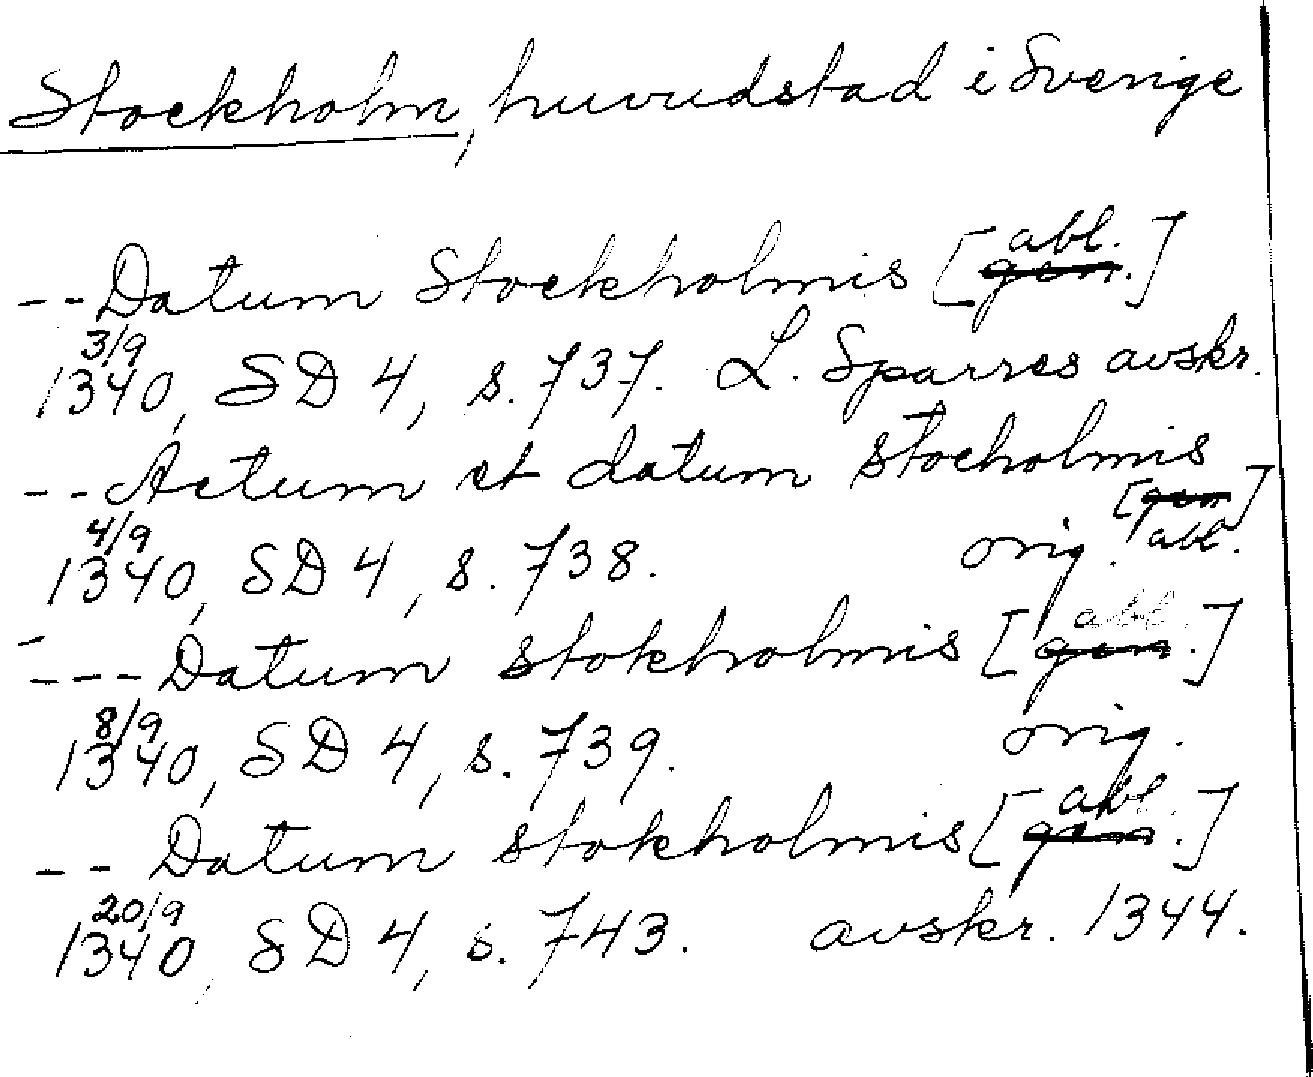 Stockholm, huvudstad i Sverige
-- Datum Stockholmis [gen. abl.]
3/9
1340, SD 4, s. 737. L. Sparres avskr.
-- Actum et datum stocholmis
[gen abl.]
4/9
1340, SD 4, s. 738. orig.
--- Datum stokholmis [gen. abl.]
8/9
1340, SD 4, s. 739. orig.
-- Datum stokholmis [gen. abl.]
20/9
1340, SD 4, s. 743. avskr. 1344.